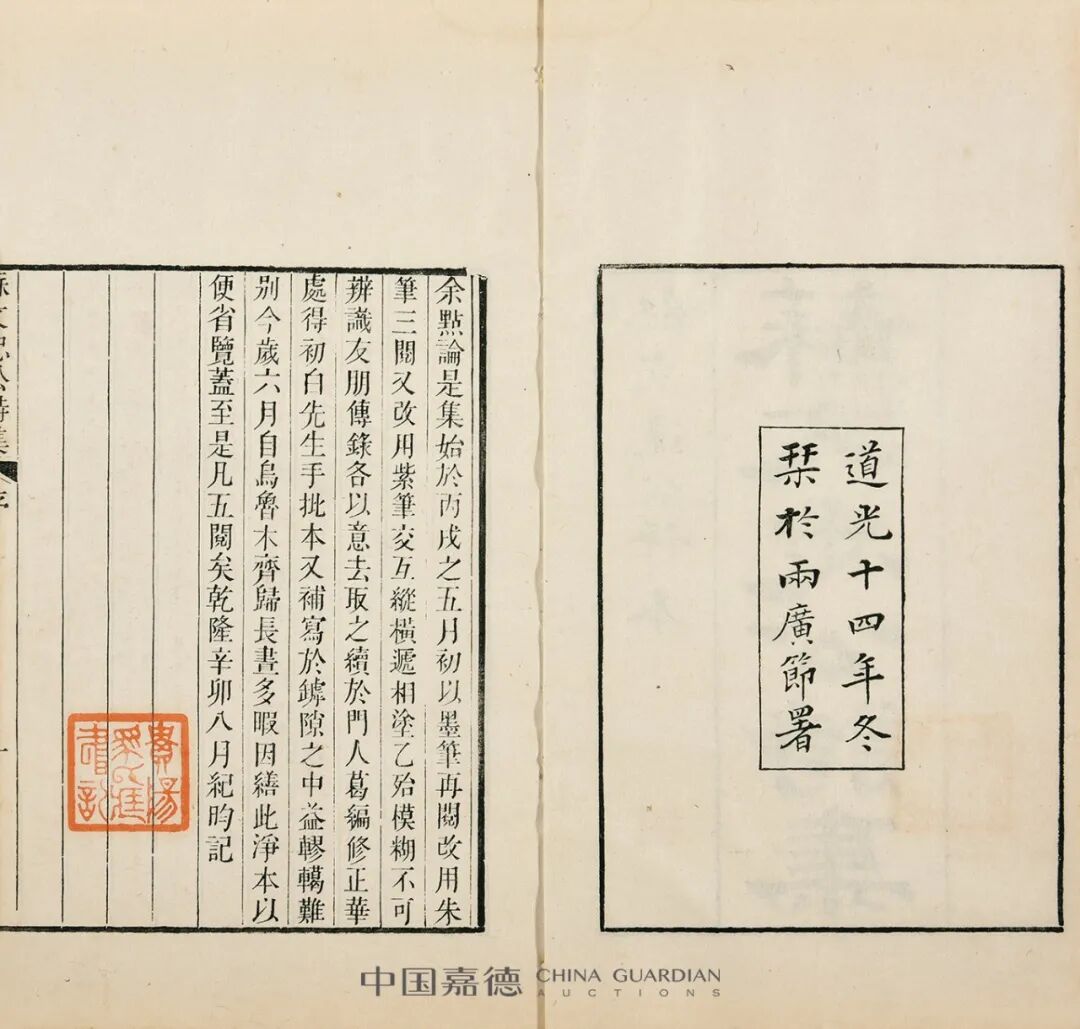 道光十四年冬
栞於兩廣節署
余點論是集始於丙戌之五月初以墨筆再閱改用朱
筆三閱又改用紫筆交互縱橫遞相塗乙殆模糊不可
辨識友朋傳錄各以意去取之續於門人葛編修正華
處得初白先生手批本又補寫於罅隙之中益轇轕難
别今歲六月自烏魯木齊歸長晝多暇因繕此淨本以
便省覽蓋至是凡五閱矣乾隆辛卯八月紀昀記
蘇文忠公詩集
序
一
中国嘉德 CHINA GUARDIAN
AUCTIONS